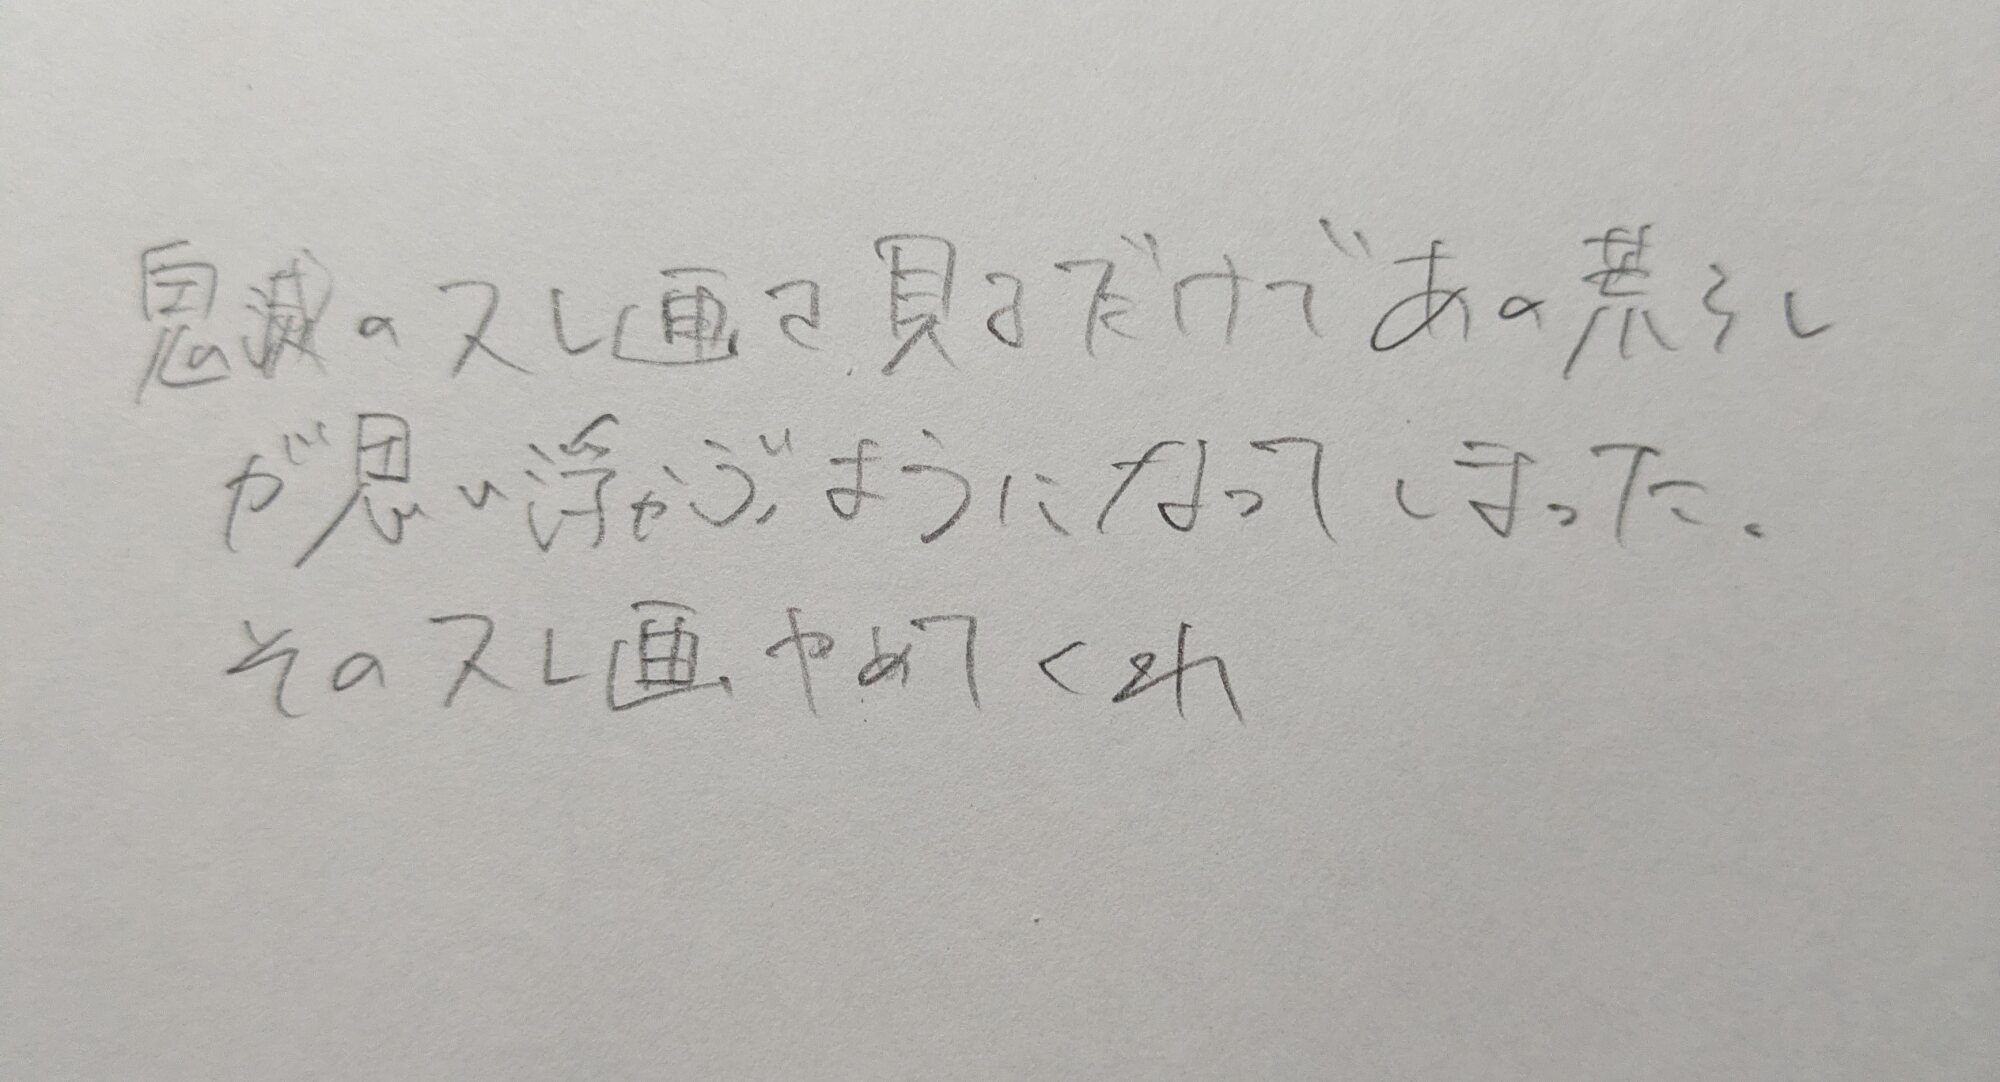 鬼滅のスレ画を見るだけであの荒らし
が思い浮かぶようになってしまった.
そのスレ画やめてくれ